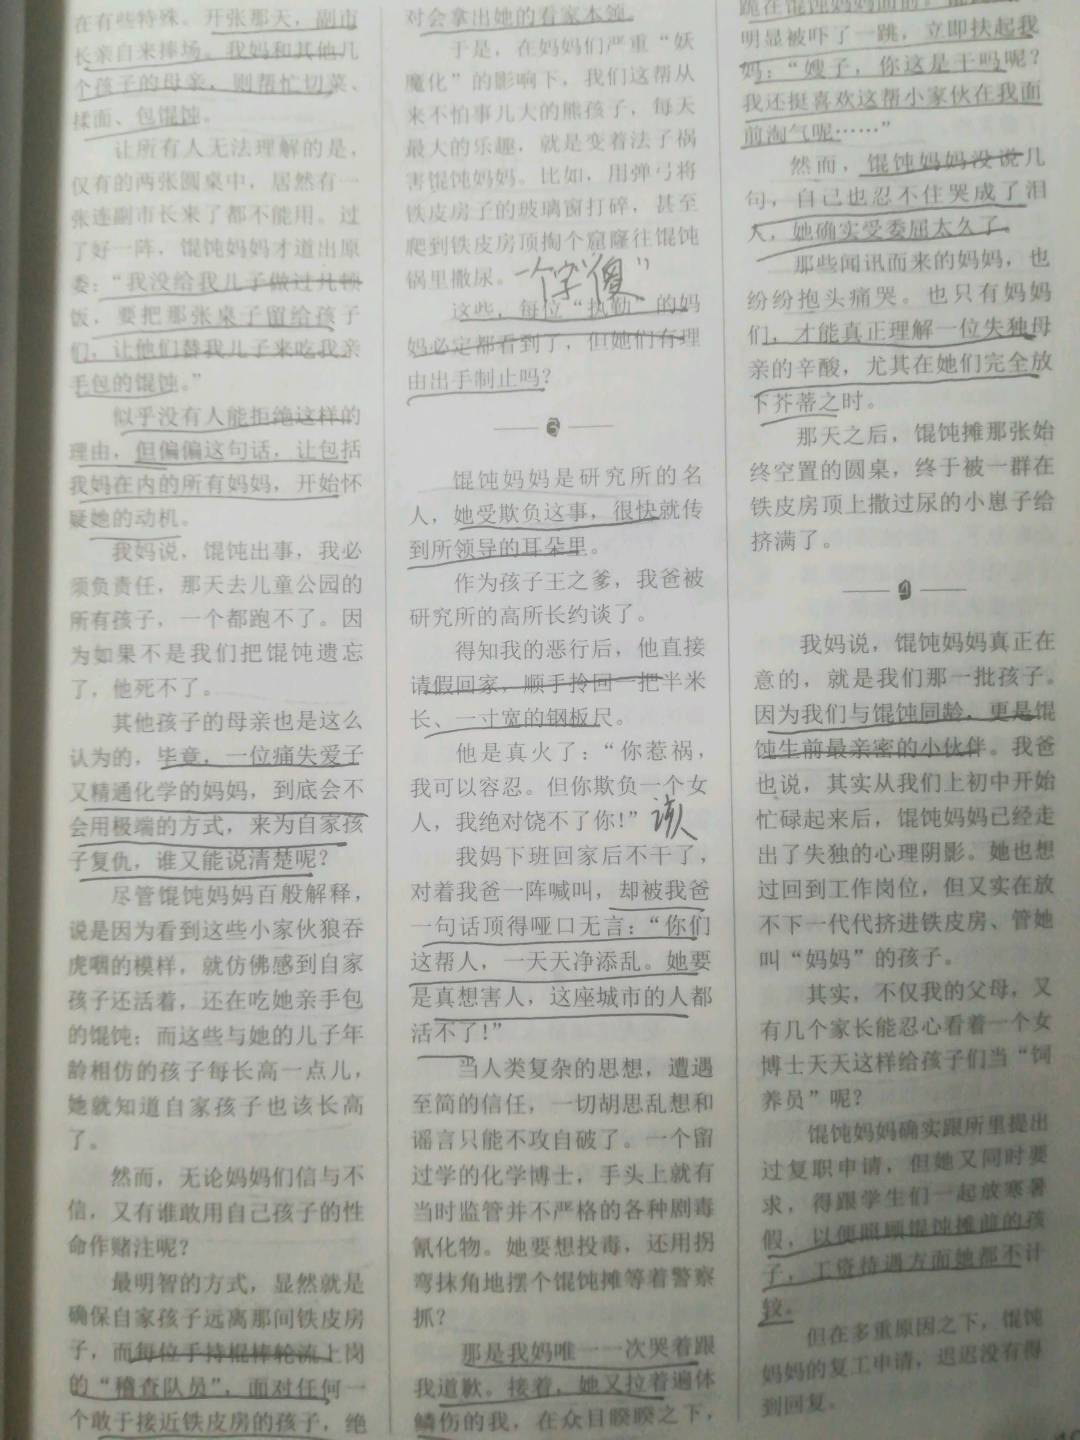 在有些特殊。开张那天，副市
长亲自来捧场。我妈和其他几
个孩子的母亲，则帮忙切菜、
揉面、包馄饨。
让所有人无法理解的是，
仅有的两张圆桌中，居然有一
张连副市长来了都不能用。过
了好一阵，馄饨妈妈才道出原
委：“我没给我儿子做过几顿
饭，要把那张桌子留给孩子
们，让他们替我儿子来吃我亲
手包的馄饨。”
似乎没有人能拒绝这样的
理由，但偏偏这句话，让包括
我妈在内的所有妈妈，开始怀
疑她的动机。
我妈说，馄饨出事，我必
须负责任，那天去儿童公园的
所有孩子，一个都跑不了。因
为如果不是我们把馄饨遗忘
了，他死不了。
其他孩子的母亲也是这么
认为的，毕竟，一位痛失爱子
又精通化学的妈妈，到底会不
会用极端的方式，来为自家孩
子复仇，谁又能说清楚呢？
尽管馄饨妈妈百般解释，
说是因为看到这些小家伙狼吞
虎咽的模样，就仿佛感到自家
孩子还活着，还在吃她亲手包
的馄饨；而这些与她的儿子年
龄相仿的孩子每长高一点儿，
她就知道自家孩子也该长高
了。
然而，无论妈妈们信与不
信，又有谁敢用自己孩子的性
命作赌注呢？
最明智的方式，显然就是
确保自家孩子远离那间铁皮房
子，而每位手持棍棒轮流上岗
的“稽查队员”，面对任何一
个敢于接近铁皮房的孩子，绝
对会拿出她的看家本领。
于是，在妈妈们严重“妖
魔化”的影响下，我们这帮从
来不怕事儿大的熊孩子，每天
最大的乐趣，就是变着法子祸
害馄饨妈妈。比如，用弹弓将
铁皮房子的玻璃窗打碎，甚至
爬到铁皮房顶掏个窟窿往馄饨
锅里撒尿。一个字“傻”
这些，每位“执勤”的妈
妈必定都看到了，但她们有理
由出手制止吗？
3
馄饨妈妈是研究所的名
人，她受欺负这事，很快就传
到所领导的耳朵里。
作为孩子王之爹，我爸被
研究所的高所长约谈了。
得知我的恶行后，他直接
请假回家，顺手拎回一把半米
长、一寸宽的钢板尺。
他是真火了：“你惹祸，
我可以容忍。但你欺负一个女
人，我绝对饶不了你！”该
我妈下班回家后不干了，
对着我爸一阵喊叫，却被我爸
一句话顶得哑口无言：“你们
这帮人，一天天净添乱。她要
是真想害人，这座城市的人都
活不了！”
当人类复杂的思想，遭遇
至简的信任，一切胡思乱想和
谣言只能不攻自破了。一个留
过学的化学博士，手头上就有
当时监管并不严格的各种剧毒
氰化物。她要想投毒，还用拐
弯抹角地摆个馄饨摊等着警察
抓？
那是我妈唯一一次哭着跟
我道歉。接着，她又拉着遍体
鳞伤的我，在众目睽睽之下，
跪在馄饨妈妈面前。
明显被吓了一跳，立即扶起我
妈：“嫂子，你这是干吗呢？
我还挺喜欢这帮小家伙在我面
前淘气呢……”
然而，馄饨妈妈没说几
句，自己也忍不住哭成了泪
人，她确实受委屈太久了。
那些闻讯而来的妈妈，也
纷纷抱头痛哭。也只有妈妈
们，才能真正理解一位失独母
亲的辛酸，尤其在她们完全放
下芥蒂之时。
那天之后，馄饨摊那张始
终空置的圆桌，终于被一群在
铁皮房顶上撒过尿的小崽子给
挤满了。
4
我妈说，馄饨妈妈真正在
意的，就是我们那一批孩子。
因为我们与馄饨同龄，更是馄
饨生前最亲密的小伙伴。我爸
也说，其实从我们上初中开始
忙碌起来后，馄饨妈妈已经走
出了失独的心理阴影。她也想
过回到工作岗位，但又实在放
不下一代代挤进铁皮房、管她
叫“妈妈”的孩子。
其实，不仅我的父母，又
有几个家长能忍心看着一个女
博士天天这样给孩子们当“饲
养员”呢？
馄饨妈妈确实跟所里提出
过复职申请，但她又同时要
求，得跟学生们一起放寒暑
假，以便照顾馄饨摊前的孩
子，工资待遇方面她都不计
较。
但在多重原因之下，馄饨
妈妈的复工申请，迟迟没有得
到回复。